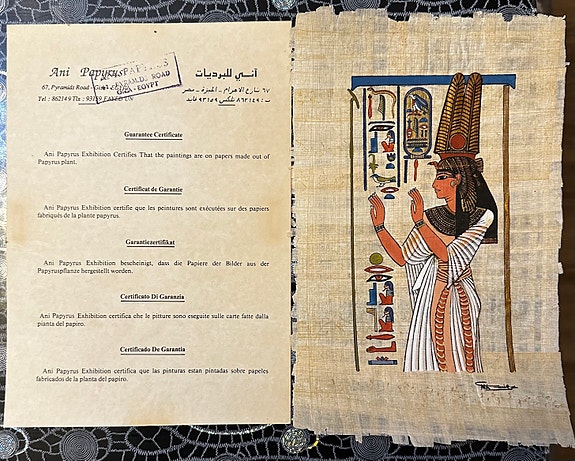 Ani Papyrus
آني للبرديات
67, Pyramids Road - Giza
٦٧ شارع الاهرام - الجيزة - مصر
PAPYRUS
PYRAMID. ROAD
GIZA - EGYPT
Tel : 862149 Tlx : 93159 FAYED UN
ت : ٨٦٢١٤٩ تلكس ٩٣١٥٩ فايد
Guarantee Certificate
Ani Papyrus Exhibition Certifies That the paintings are on papers made out of
Papyrus plant.
Certificat de Garantie
Ani Papyrus Exhibition certifie que les peintures sont exécutées sur des papiers
fabriqués de la plante papyrus.
Garantiezertifikat
Ani Papyrus Exhibition bescheinigt, dass die Papiere der Bilder aus der
Papyruspflanze hergestellt worden.
Certificato Di Garanzia
Ani Papyrus Exhibition certifica che le pitture sono eseguite sulle carte fatte dalla
pianta del papiro.
Certificado De Garantia
Ani Papyrus Exhibition certifica que las pinturas estan pintadas sobre papeles
fabricados de la planta del papiro.